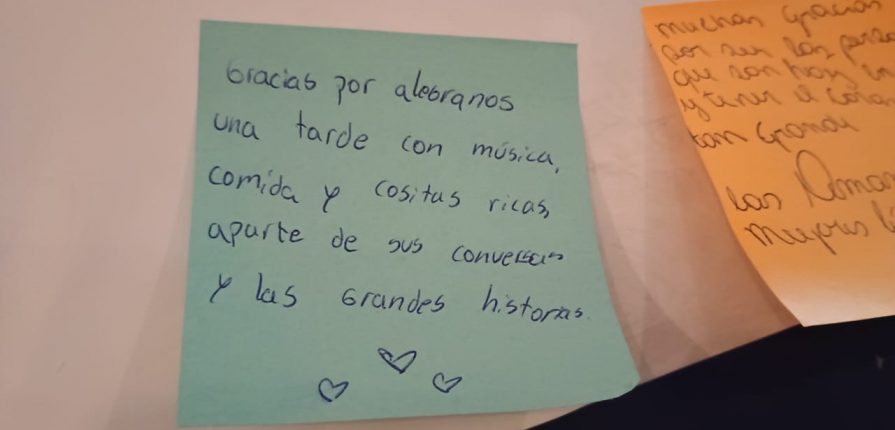 Gracias por alegranos
una tarde con música,
comida y cositas ricas,
aparte de sus
y las Grandes historias.
muchas gracias
por ser las
que son hoy
y tener el
tan Grande
Las